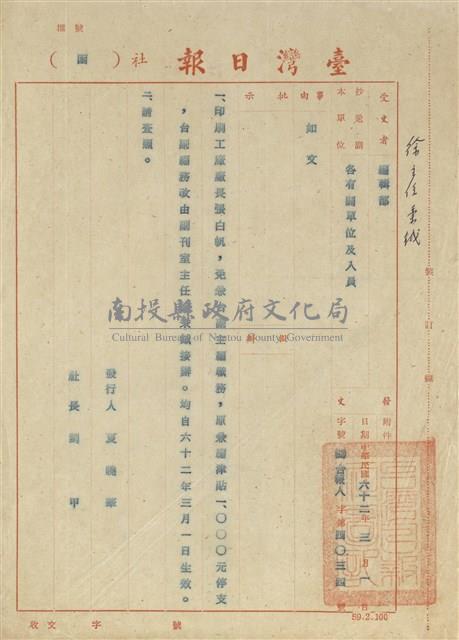 號 檔
臺灣日報社（函）
徐主任秉鉞
受文者 編輯部
抄兼副本單位 各有關單位及人員
事由 如文
批示
一、印刷工廠廠長張白帆，免兼
主編職務，原兼編津貼一、〇〇〇元停支
，台副編務改由副刊室主任
接辦。均自六十二年三月一日生效。
二、請查照。
發行人 夏曉華
社長 劉甲
附件
日期 中華民國六十二年三月一日
字號 台報人字第四〇三四號
號 訂 線
南投縣政府文化局
Cultural Bureau of Nantou County Government
收文 字 號
59.2.100